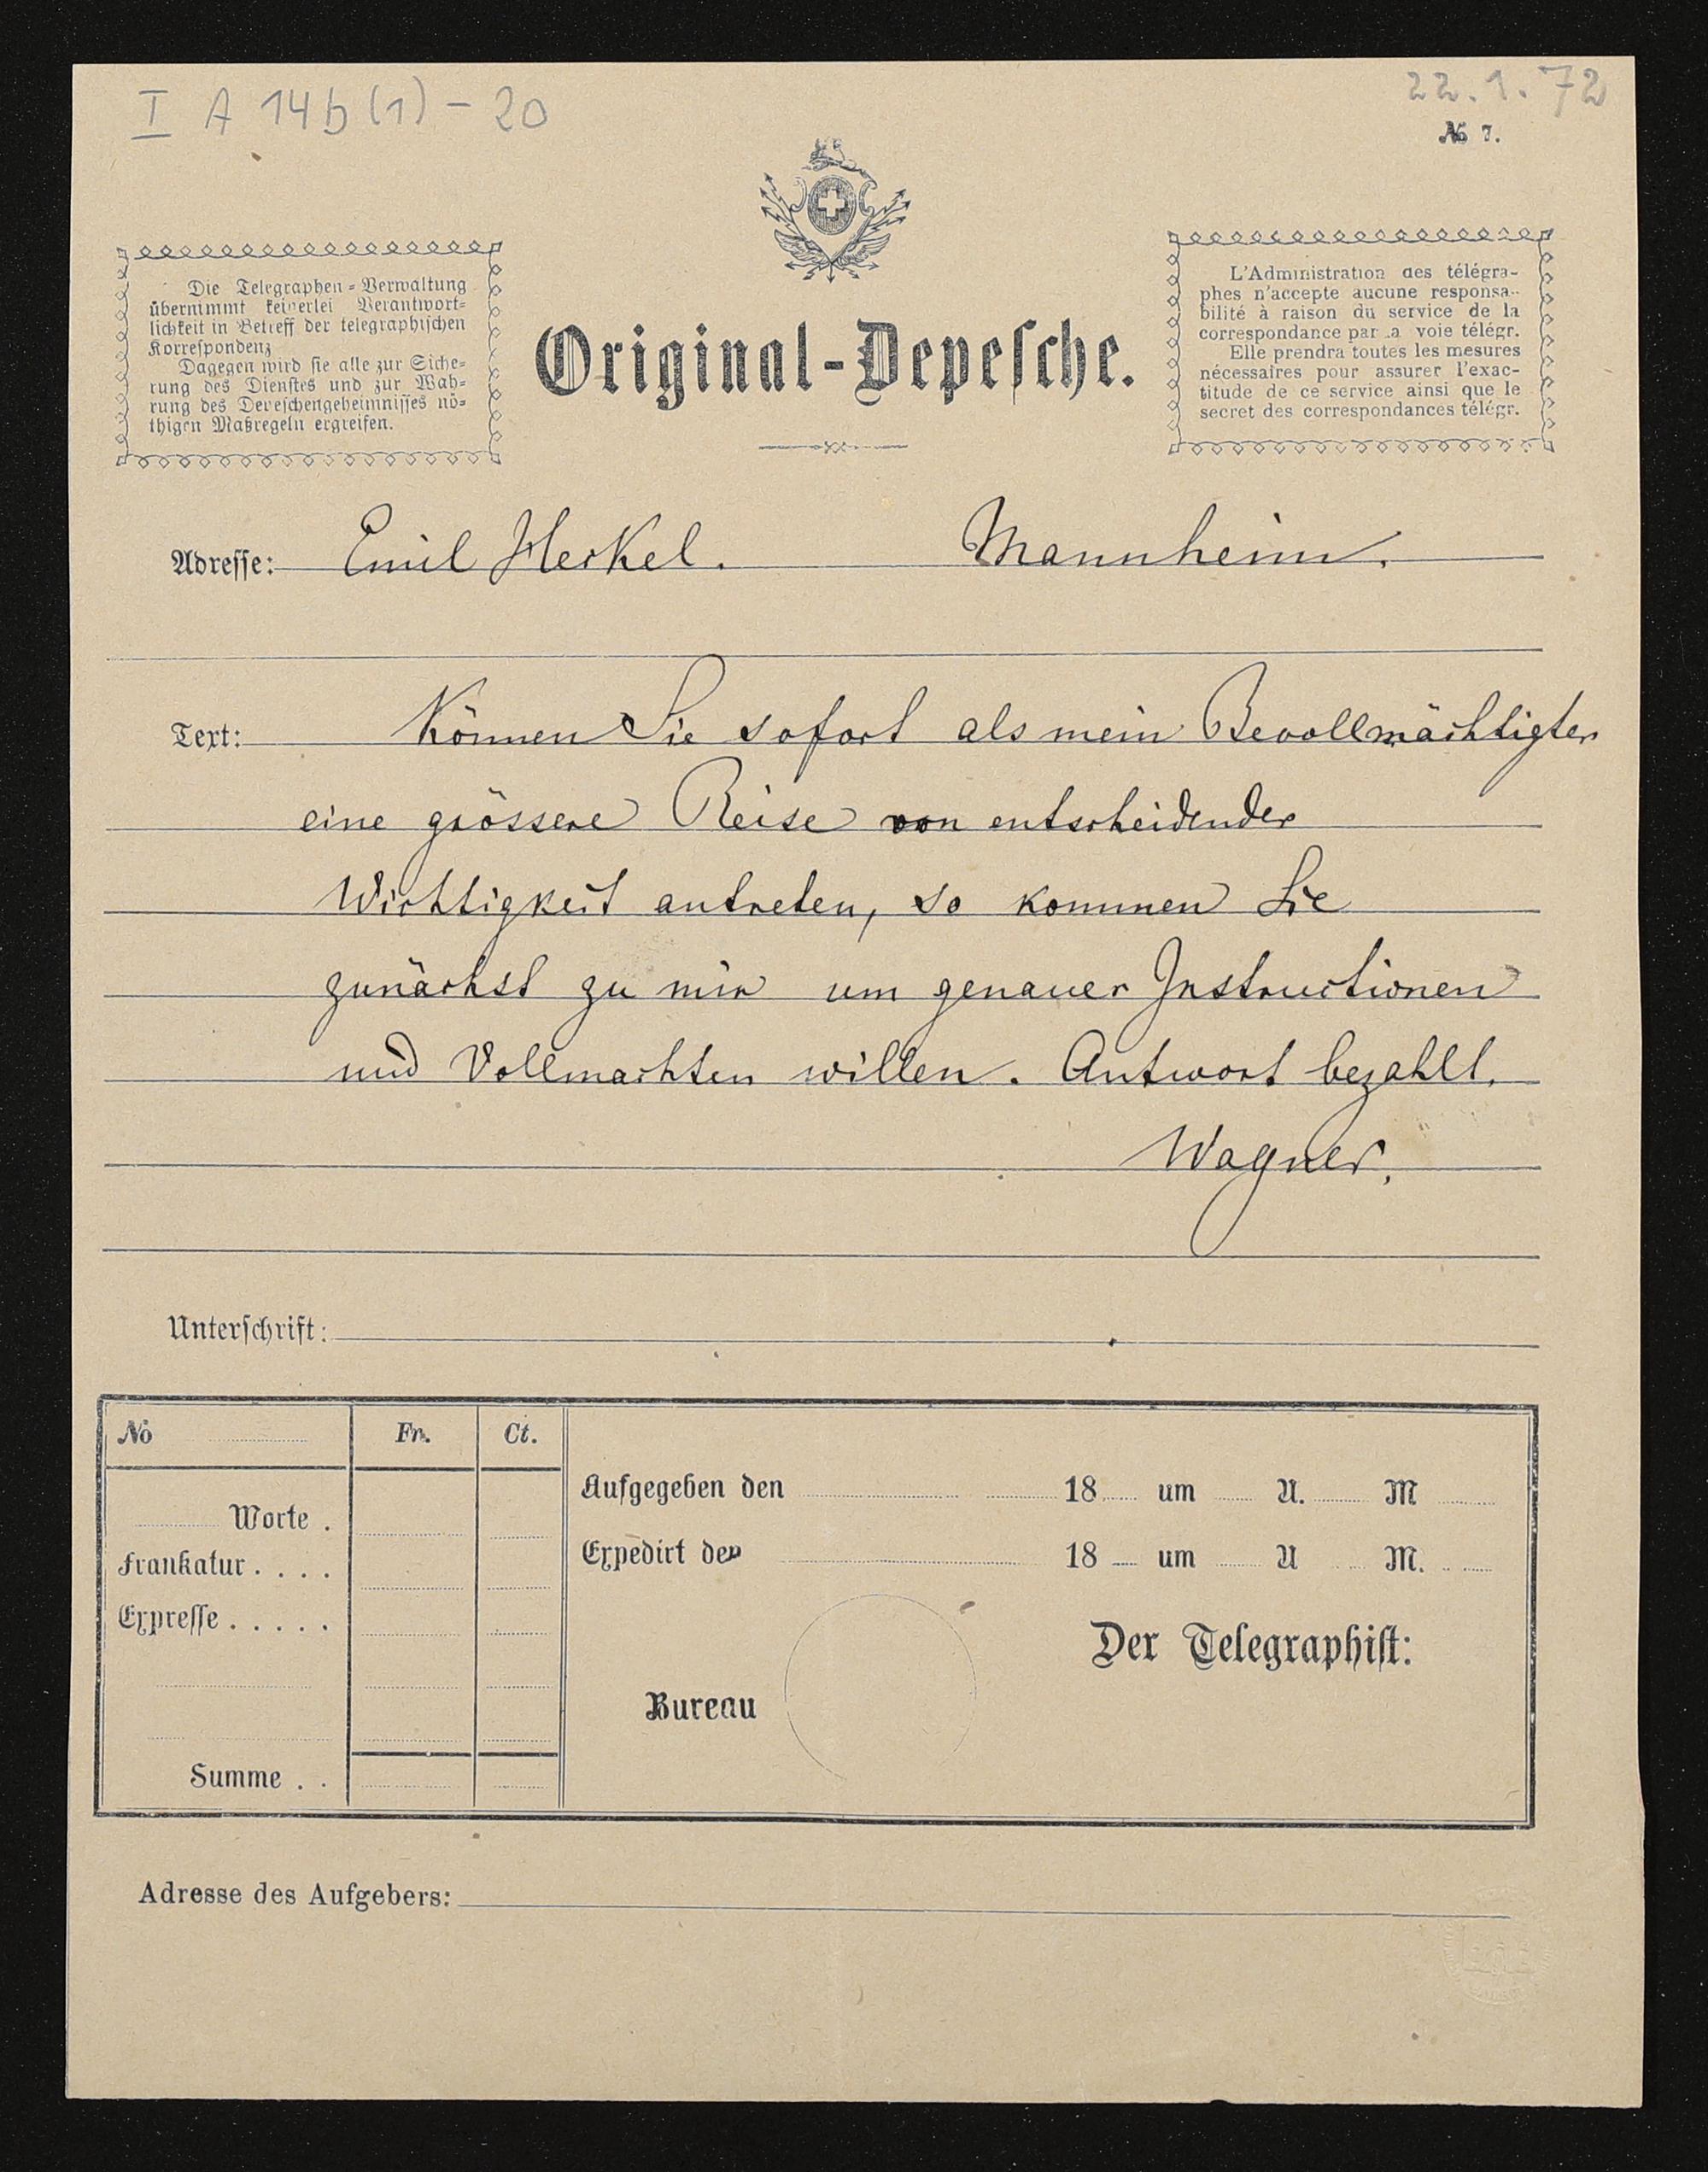 I A 14b (1) - 20
22.1.72
№ 7.
Die Telegraphen-Verwaltung
übernimmt keinerlei Verantwort-
lichkeit in Betreff der telegraphischen
Korrespondenz
Dagegen wird sie alle zur Siche-
rung des Dienstes und zur Wah-
rung des Depeschengeheimnisses nö-
thigen Maßregeln ergreifen.
Original-Depesche.
L'Administration des télégra-
phes n'accepte aucune responsa-
bilité à raison du service de la
correspondance par la voie télégr.
Elle prendra toutes les mesures
nécessaires pour assurer l'exac-
titude de ce service ainsi que le
secret des correspondances télégr.
Adresse: Emil Heckel. Mannheim.
Text: Können Sie sofort als mein Bevollmächtigter
eine grössere Reise von entscheidender
Wichtigkeit antreten, so kommen Sie
zunächst zu mir um genauer Instructionen
und Vollmachten willen. Antwort bezahlt.
Wagner.
Unterschrift:
No Fr. Ct.
Worte .
Frankatur . . . .
Expresse . . . . .
Summe . .
Aufgegeben den 18 um U. M
Expedirt den 18 um U M.
Der Telegraphist:
Bureau
Adresse des Aufgebers: